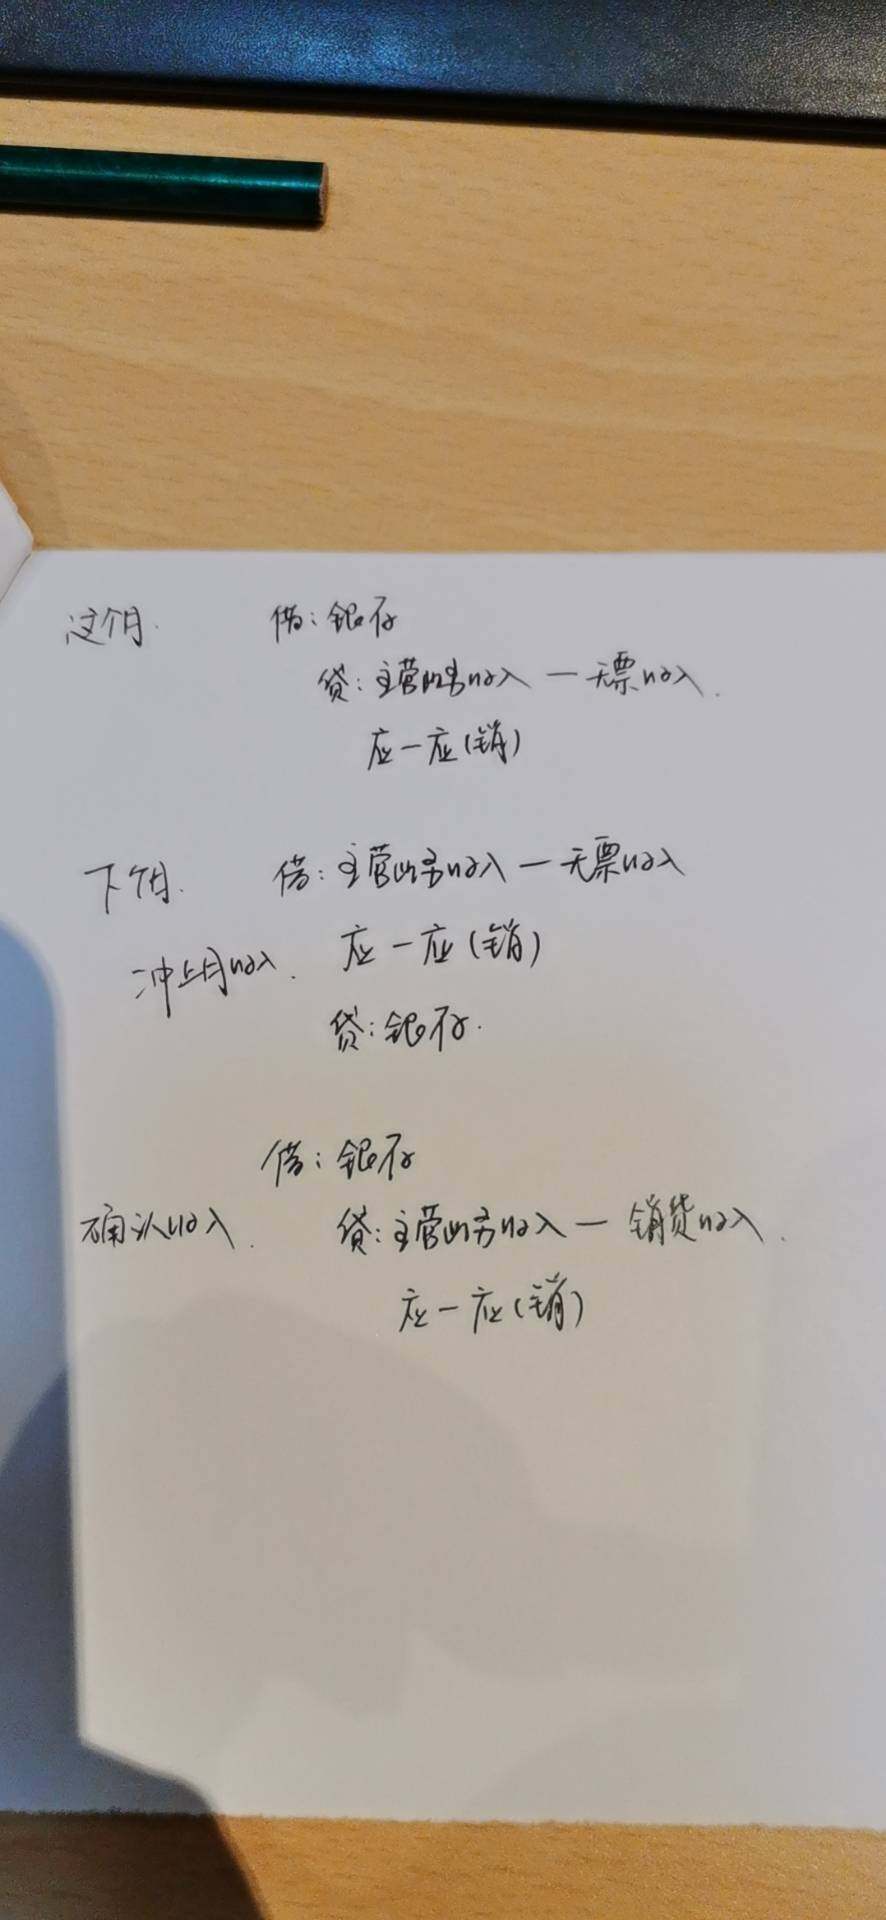 这个月. 借: 银存
贷: 主营业务收入 — 无票收入.
应—应(销)
下个月. 借: 主营业务收入 — 无票收入
冲上月收入. 应 — 应(销)
贷: 银存.
借: 银存
确认收入. 贷: 主营业务收入 — 销货收入.
应—应(销)